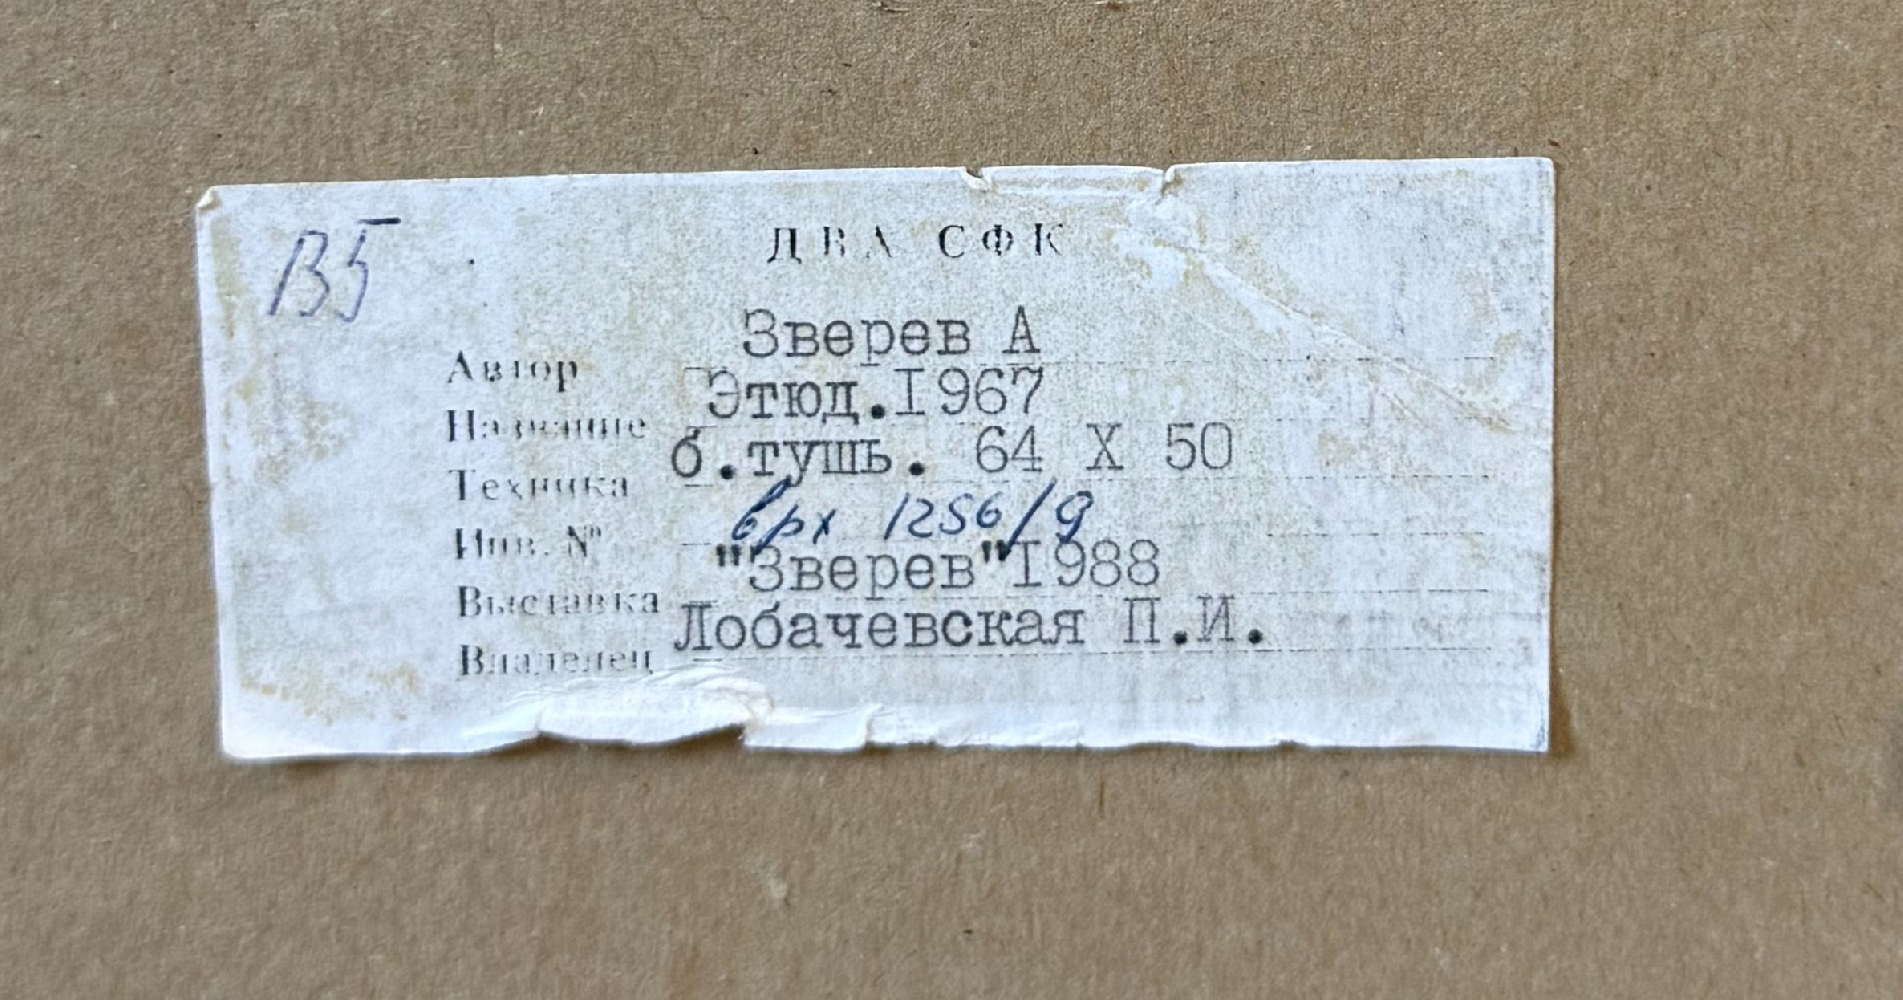 В5
ДВА СФК
Автор Зверев А
Название Этюд.I967
Техника б.тушь. 64 Х 50
Инв. № врх 1256/9
Выставка "Зверев"I988
Владелец Лобачевская П.И.